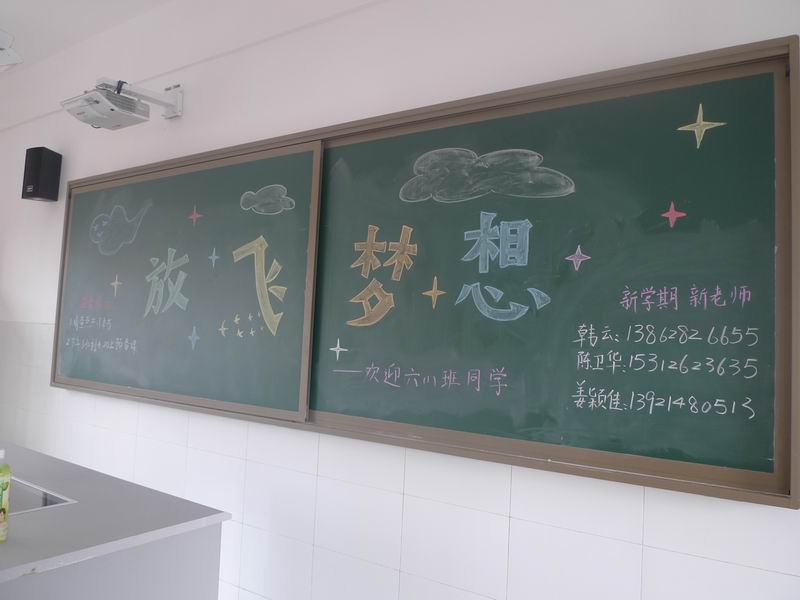 放飞梦想
——欢迎六(1)班同学
新学期 新老师
韩云:13862826655
陈卫华:15312623635
姜颖佳:13921480513